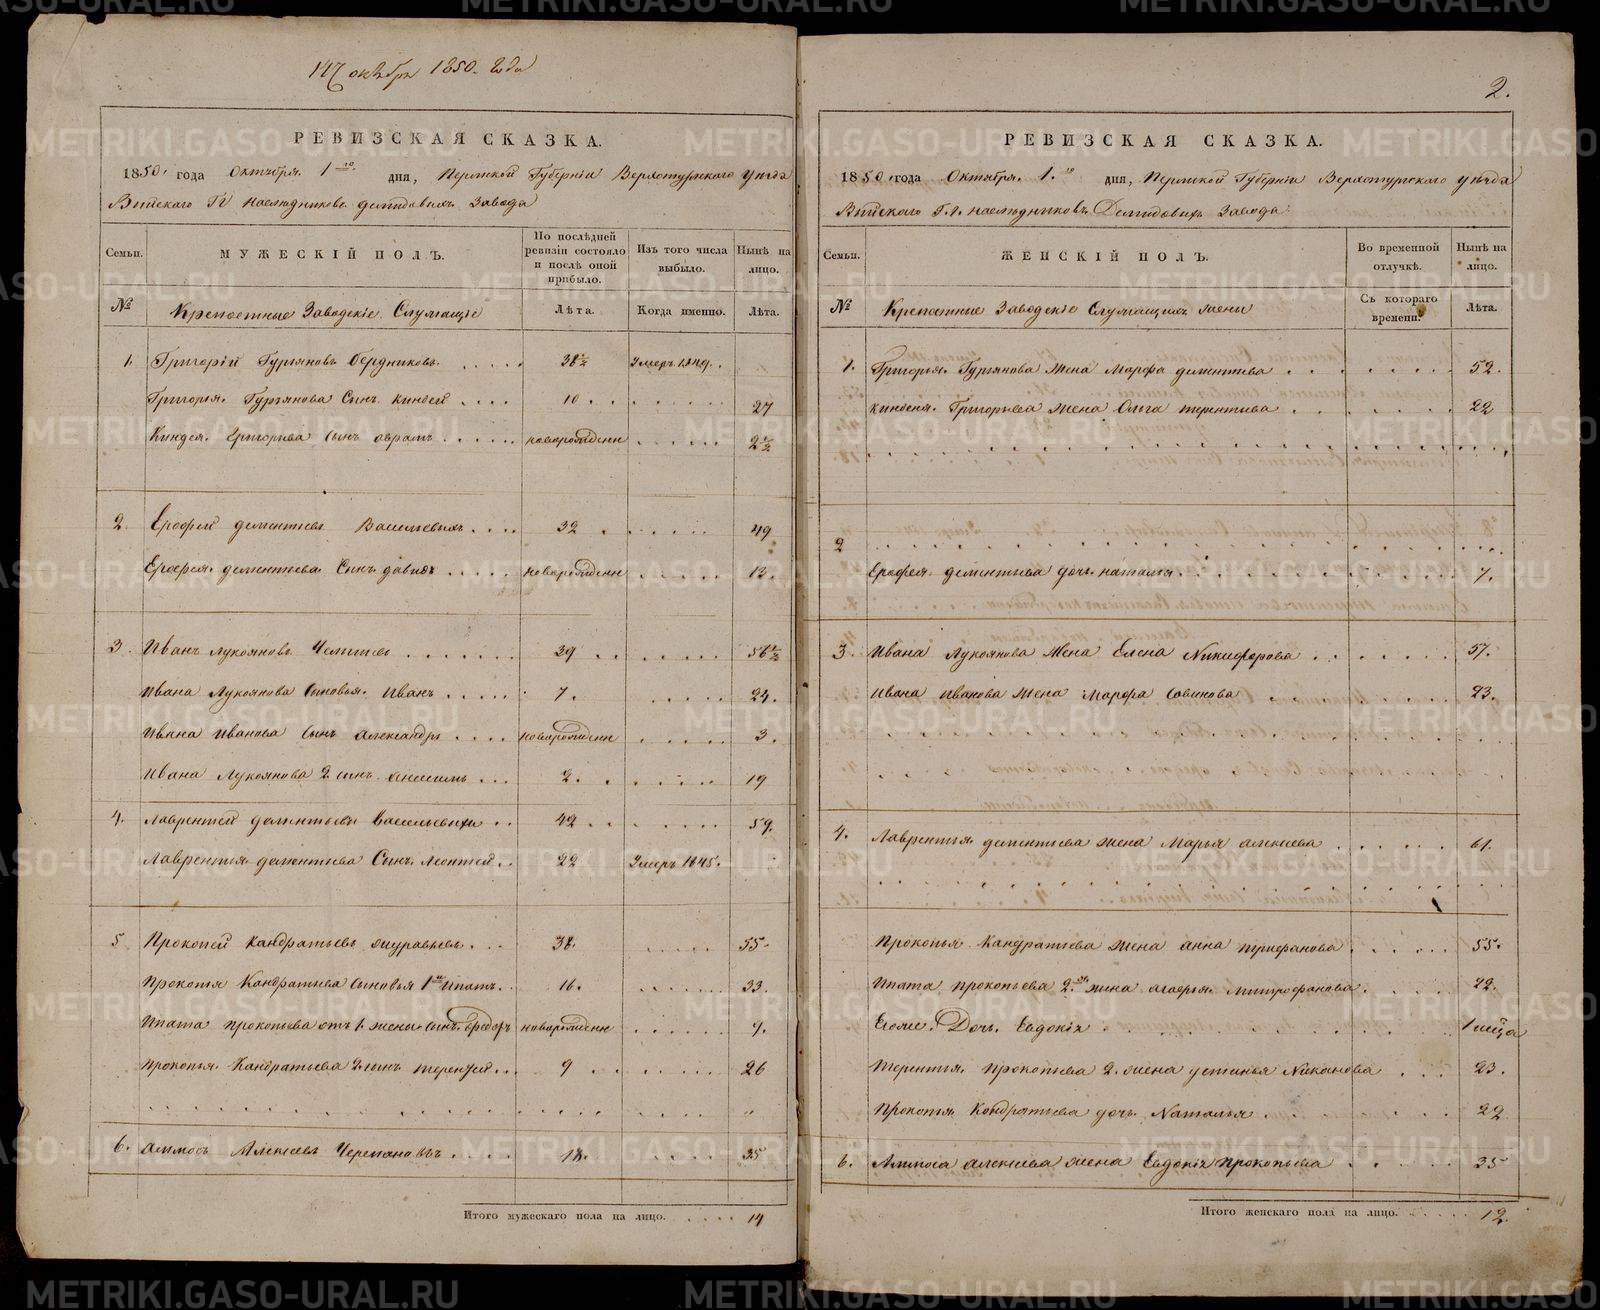 октября 1850 года
РЕВИЗСКАЯ СКАЗКА.
1850, года Октября 1го дня, Пермской Губерніи Верхотурскаго уѣзда
Выйскаго Гг наследниковъ демидовыхъ завода
Семьи. МУЖЕСКІЙ ПОЛЪ. По послѣдней ревизіи состояло и послѣ оной прибыло. Изъ того числа выбыло. Нынѣ на лицо.
№ Крепостные Заводскіе Служащіе Лѣта. Когда именно. Лѣта.
1. Григорій Гурьяновъ Бердниковъ 38½ Умеръ 1849.
Григорья Гурьянова Сынъ киндей 10 27
Киндея Григорьева сынъ аврамъ новорожденн 2½
2. Ерофей дементьевъ Васильевыхъ 32 49
Ерофея дементьева Сынъ давидъ новорожденн 13.
3. Иванъ лукояновъ 39 56½
Ивана Лукоянова Сыновья Иванъ 7. 24.
Ивана Иванова сынъ александръ новорожденн 3.
Ивана Лукоянова 2 сынъ анисимъ 2. 19
4. Лаврентей дементьевъ Васильевыхъ 42 59.
Лаврентья дементьева Сынъ Леонтей 22 Умеръ 1845.
5 Прокопей кандратьевъ журавлевъ 38. 55
Прокопья Кандратьева сыновья 1й Ипатъ 16. 33.
Ипата прокопьева отъ 1. жены сынъ федоръ новорожденн 9.
Прокопья Кандратьева 2. сынъ терентей 9 26
6. аммосъ Алексеевъ Черепановъ 18. 35
Итого мужескаго пола на лицо. 14
2.
РЕВИЗСКАЯ СКАЗКА.
1850 года Октября 1.го дня, Пермской Губерніи Верхотурскаго уѣзда
Выйскаго Г.г. наследниковъ Демидовыхъ Завода
Семьи. ЖЕНСКІЙ ПОЛЪ. Во временной отлучкѣ. Нынѣ на лицо.
№ Крепостные Заводскіе Служащихъ жены Съ котораго времени. Лѣта.
1. Григорья Гурьянова жена Марфа дементьева 52.
киндея Григорьева жена Ольга терентьева 22
2
Ерофея дементьева дочь наталья 7.
3. Ивана Лукоянова Жена Елена Никифорова 57.
Ивана Иванова жена Марфа Савинова 23.
4. Лаврентья дементьева жена Марья алексеева 61.
Прокопья Кандратьева жена анна трифанова 55.
Ипата прокопьева 2я жена агафья митрофанова 22.
Егоже Дочь Евдокія
Терентья прокопьева 2. жена устинья Никонова 23.
Прокопья Кондратьева дочь Наталья 22
6. Аммоса алексеева жена Евдокія прокопьева 35
Итого женскаго пола на лицо. 12.
METRIKI.GASO-URAL.RU